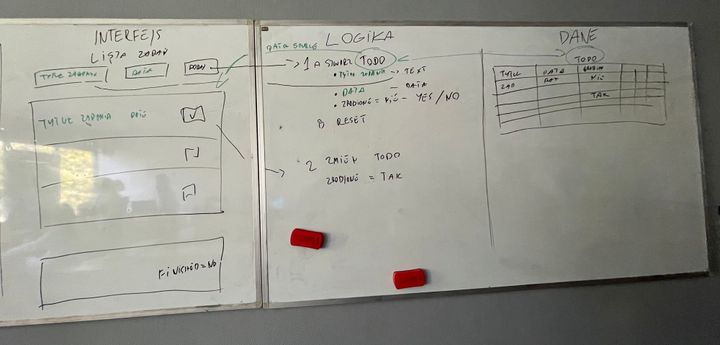 INTERFEJS
LISTA ZADAŃ
TYTUŁ ZADANIA
DATA
DODAJ
TYTUŁ ZADANIA DZIŚ
FINISHED=NO
LOGIKA
DATA
1 A STWÓRZ TODO
• TYTUŁ ZADANIA → TEXT
• DATA – DATA
• ZROBIONE = NIE – YES/NO
B RESET
2 ZMIEŃ TODO
ZROBIONE = TAK
DANE
TODO
TYTUŁ DATA ZROBIONE
ZAD DZIŚ NIE
TAK